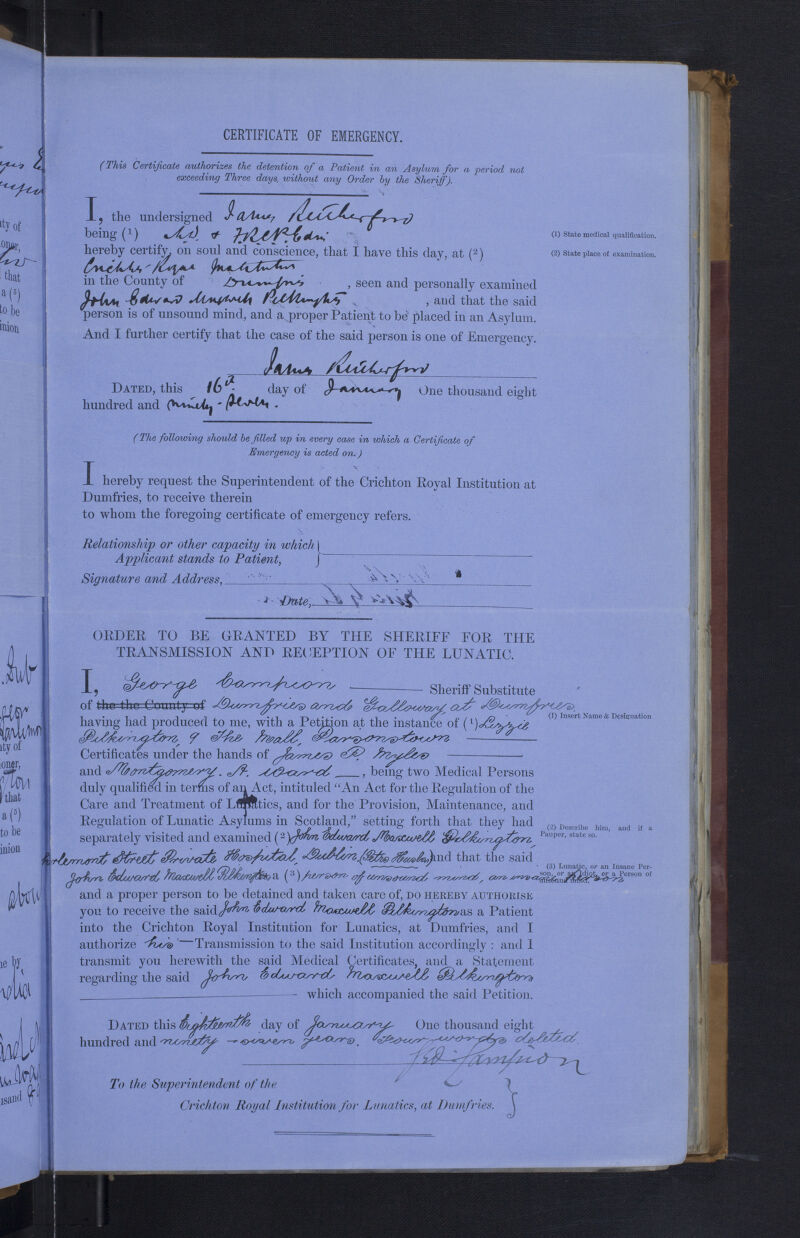 CERTIFICATE OF EMERGENCY.
(This Certificate authorizes the detention of a Patient in an Asylum for a period not
exceeding Three days, without any Order by the Sheriff).
I, the undersigned James Rutherford
being (1) M.D. & F.R.C.P. Edin
(1) State medical qualification.
hereby certify, on soul and conscience, that I have this day, at (2)
(2) State place of examination.
Crichton Royal Institution
in the County of Dumfries, seen and personally examined
John Edward Maxwell Pilkington, and that the said
person is of unsound mind, and a proper Patient to be placed in an Asylum.
And I further certify that the case of the said person is one of Emergency.
James Rutherford
DATED, this 16th day of January One thousand eight
hundred and ninety-seven.
(The following should be filled up in every case in which a Certificate of
Emergency is acted on.)
I hereby request the Superintendent of the Crichton Royal Institution at
Dumfries, to receive therein
to whom the foregoing certificate of emergency refers.
Relationship or other capacity in which
Applicant stands to Patient,
Signature and Address,
Date,
ORDER TO BE GRANTED BY THE SHERIFF FOR THE
TRANSMISSION AND RECEPTION OF THE LUNATIC.
I, George Campion Sheriff Substitute
of the the County of Dumfries and Galloway at Dumfries
having had produced to me, with a Petition at the instance of (1) Lizzie
(1) Insert Name & Designation
Pilkington, 9 The Mall, Parsonstown
Certificates under the hands of James P. Myles
and Montgomery. A. Ward, being two Medical Persons
duly qualified in terms of an Act, intituled "An Act for the Regulation of the
Care and Treatment of Lunatics, and for the Provision, Maintenance, and
Regulation of Lunatic Asylums in Scotland," setting forth that they had
separately visited and examined (2) John Edward Maxwell Pilkington,
(2) Describe him, and if a
Pauper, state so.
Street Private Hospital, Dublin, and that the said
John Edward Maxwell Pilkington is a (3) person of unsound mind, an insane person
(3) Lunatic, or an Insane Per-
son, or an Idiot, or a Person of
unsound mind.
and a proper person to be detained and taken care of, DO HEREBY AUTHORISE
you to receive the said John Edward Maxwell Pilkington as a Patient
into the Crichton Royal Institution for Lunatics, at Dumfries, and I
authorize his Transmission to the said Institution accordingly: and I
transmit you herewith the said Medical Certificates, and a Statement
regarding the said John Edward Maxwell Pilkington
which accompanied the said Petition.
DATED this Eighteenth day of January One thousand eight
hundred and ninety-seven years. Four words deleted.
Campion
To the Superintendent of the
Crichton Royal Institution for Lunatics, at Dumfries.